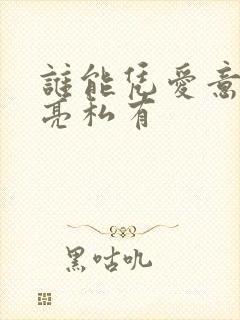 誰能凭愛意
亮私有
黑咕吪